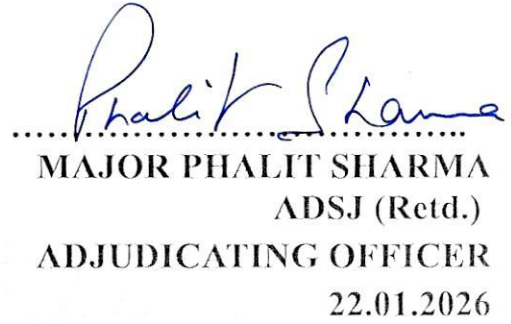 Phalit Sharma
........................................................
MAJOR PHALIT SHARMA
ADSJ (Retd.)
ADJUDICATING OFFICER
22.01.2026